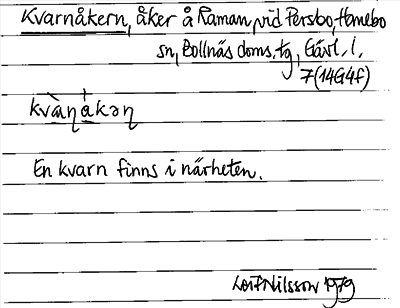 Kvarnåkern, åker å Raman, vid Persbo, Hanebo
sn, Bollnäs doms. tg, Gävl. l.
7(14G4f)
En kvarn finns i närheten.
Leif Nilsson 1979